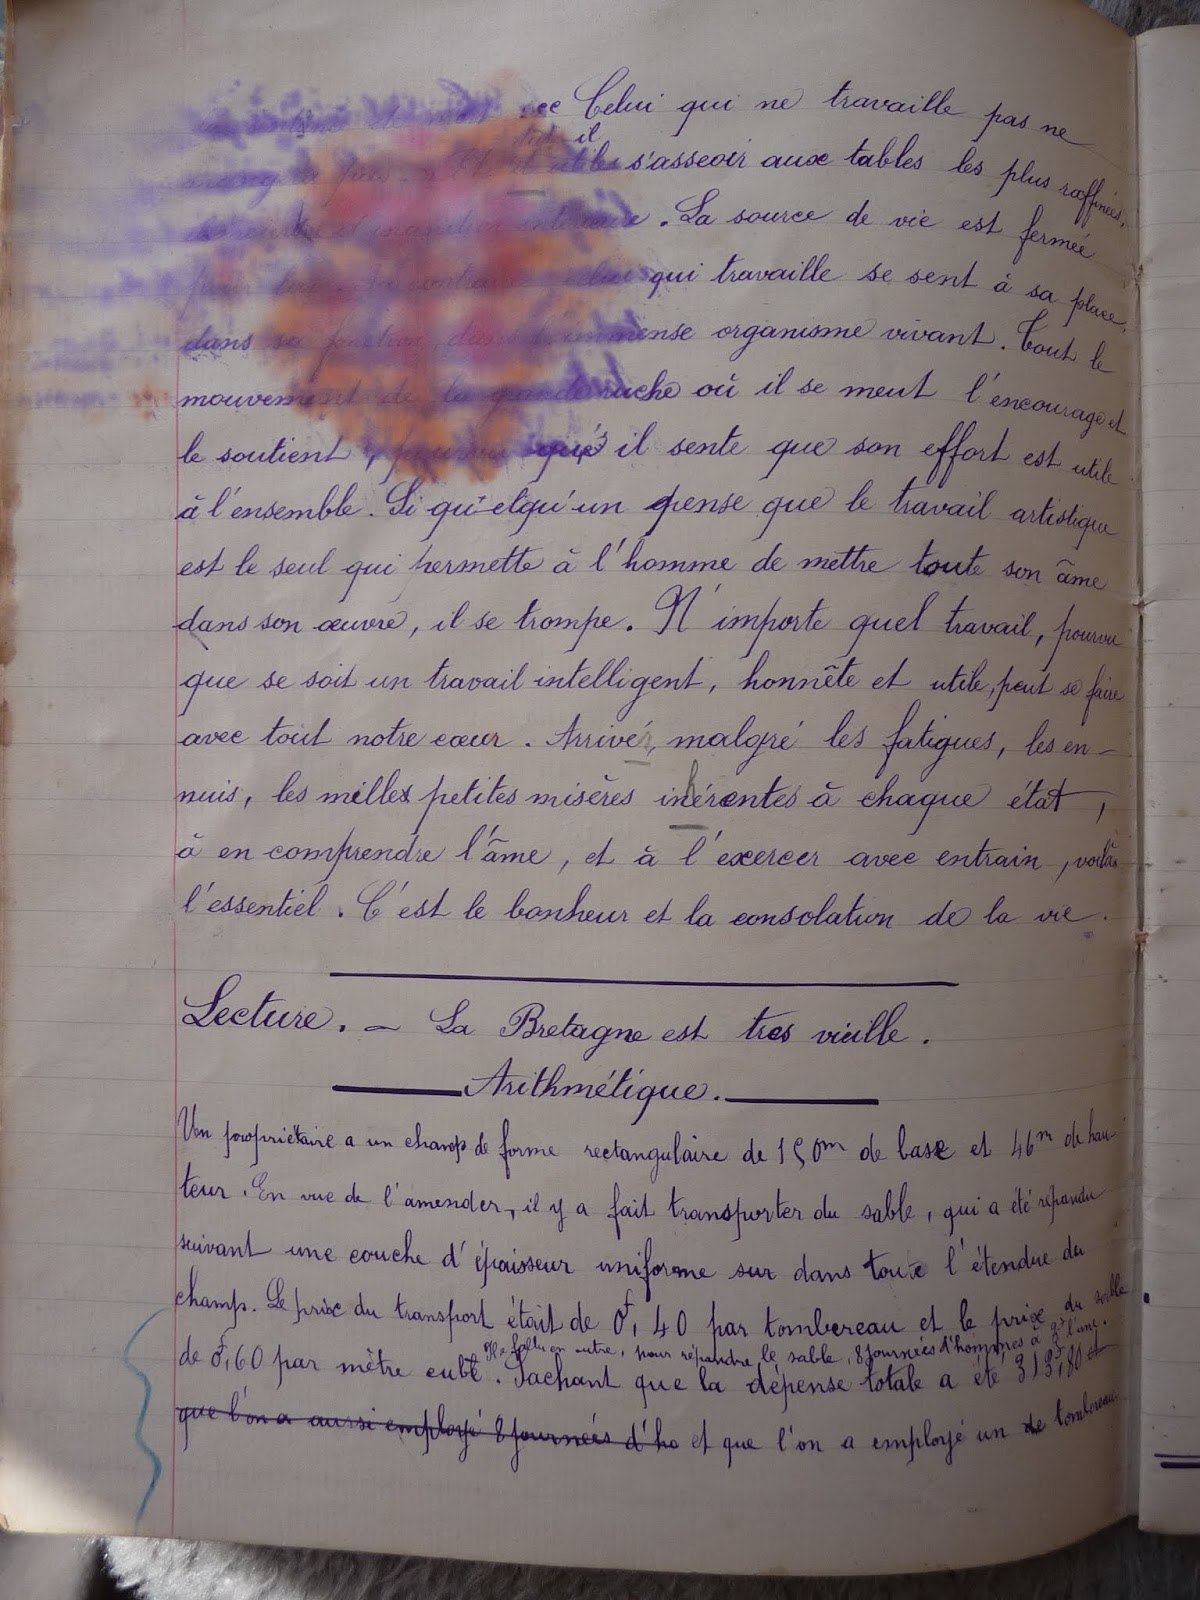 Celui qui ne travaille pas ne
il s'asseoir aux tables les plus raffinées,
. La source de vie est fermée
qui travaille se sent à sa place,
dans sa fonction, dans l'immense organisme vivant. Tout le
mouvement de la grande ruche où il se meut l'encourage et
le soutient, pourvu qu'il sente que son effort est utile
à l'ensemble. Si quelqu'un pense que le travail artistique
est le seul qui permette à l'homme de mettre toute son âme
dans son œuvre, il se trompe. N'importe quel travail, pourvu
que se soit un travail intelligent, honnête et utile, peut se faire
avec tout notre cœur. Arrivé, malgré les fatigues, les en-
nuis, les milles petites misères inhérentes à chaque état,
à en comprendre l'âme, et à l'exercer avec entrain, voilà
l'essentiel. C'est le bonheur et la consolation de la vie.
Lecture. - La Bretagne est tres vieille.
Arithmétique.
Un propriétaire a un champ de forme rectangulaire de 150m de base et 46m de hau-
teur. En vue de l'amender, il y a fait transporter du sable, qui a été répandu
suivant une couche d'épaisseur uniforme sur dans toute l'étendue du
champ. Le prix du transport était de 0f,40 par tombereau et le prix du sable
de 0f,60 par mètre cube. Il a fallu en outre, pour répandre le sable, 8 journées d'hommes à 3f l'une. Sachant que la dépense totale a été 313f,80 et
que l'on a aussi employé 8 journées d'ho et que l'on a employé un de tombereau